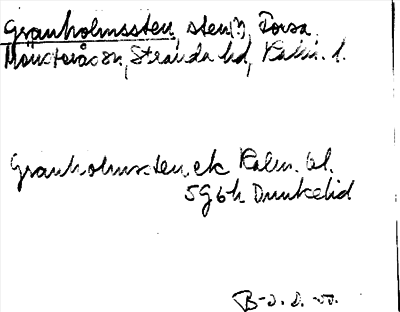 Granholmssten, sten(?), Torsa,
Mönsterås sn, Stranda hd, Kalm. l.
Granholmssten, ek Kalm. bl.
5G6h Dunkelid